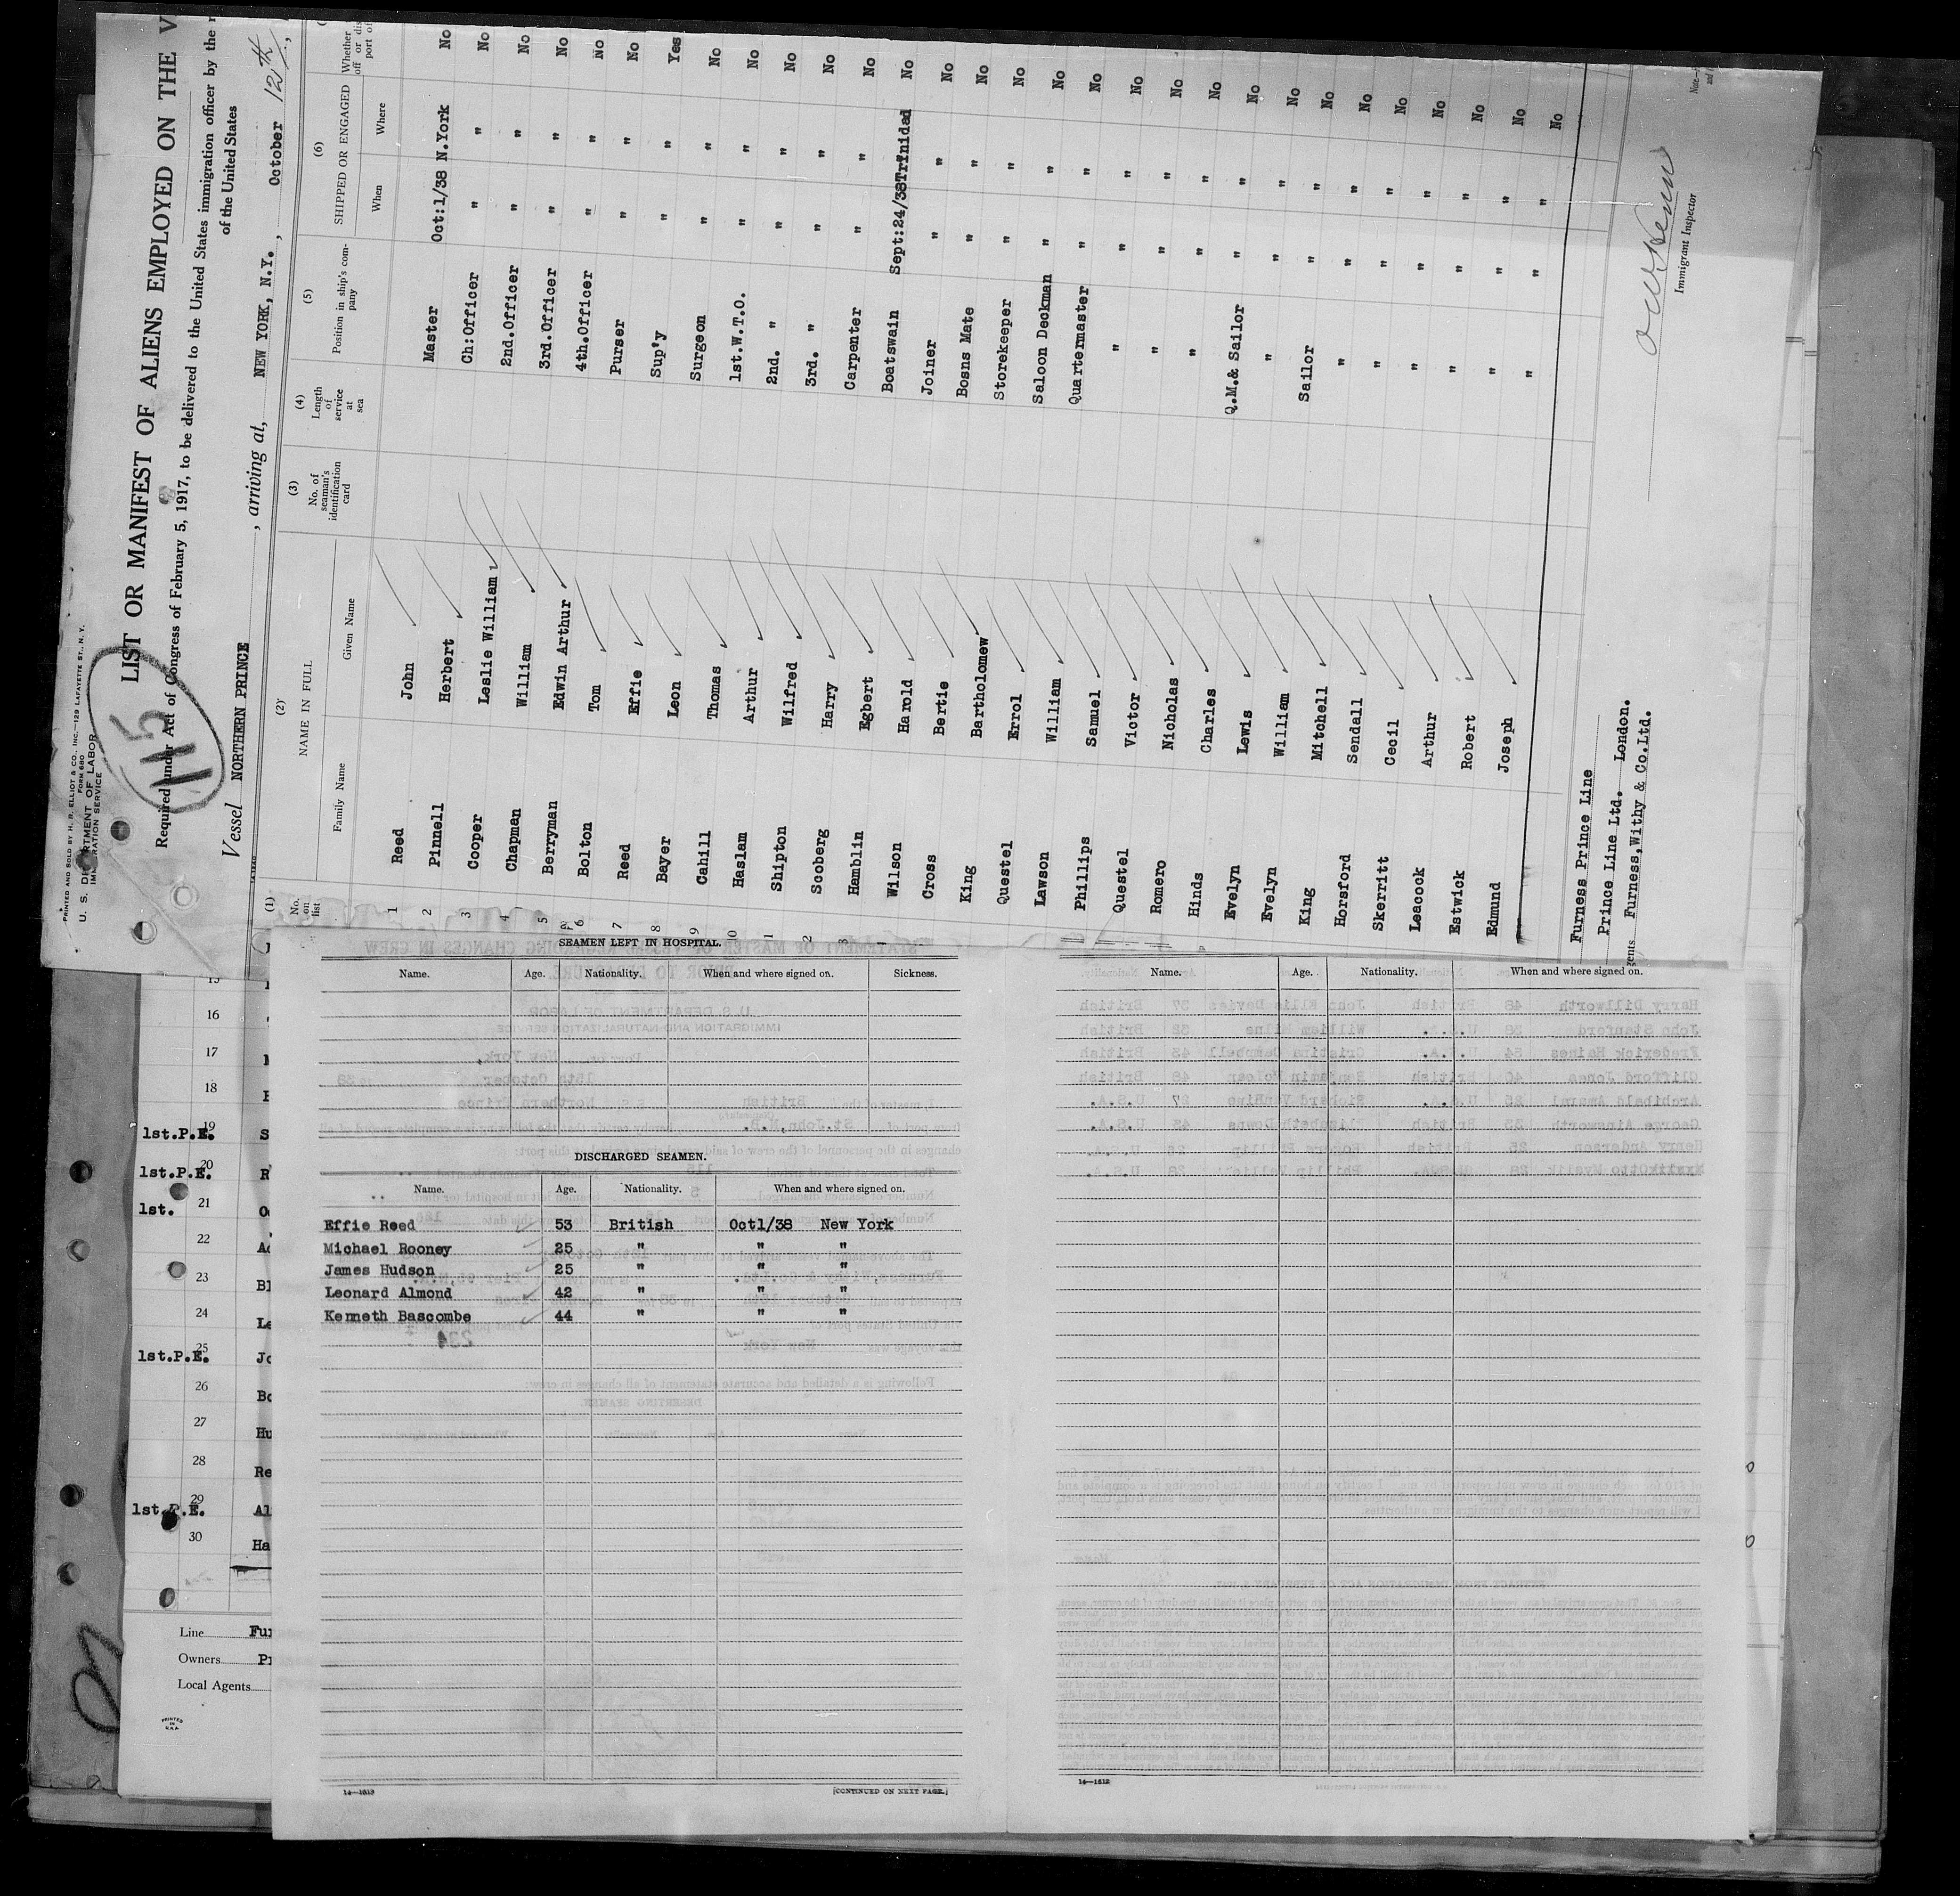 PRINTED AND SOLD BY H. B. ELLIOT & CO., INC.—129 LAFAYETTE ST., N. Y.
FORM 680
U. S. DEPARTMENT OF LABOR
IMMIGRATION SERVICE
115
LIST OR MANIFEST OF ALIENS EMPLOYED ON THE V
Required under Act of Congress of February 5, 1917, to be delivered to the United States immigration officer by the
of the United States
Vessel NORTHERN PRINCE , arriving at, NEW YORK, N.Y. , October 12th ,
(1) (2) (3) (4) (5) (6)
No. on list NAME IN FULL No. of seaman's identification card Length of service at sea Position in ship's company SHIPPED OR ENGAGED Whether
Family Name Given Name When Where
1 Reed John Master Oct:1/38 N.York No
2 Pinnell Herbert Ch:Officer " " No
3 Cooper Leslie William 2nd.Officer " " No
4 Chapman William 3rd.Officer " " No
5 Berryman Edwin Arthur 4th.Officer " " No
6 Bolton Tom Purser " " No
7 Reed Effie Sup'y " " Yes
8 Bayer Leon Surgeon " " No
9 Cahill Thomas 1st.W.T.O. " " No
0 Haslam Arthur 2nd. " " " No
1 Shipton Wilfred 3rd. " " " No
2 Scoberg Harry Carpenter " " No
3 Hamblin Egbert Boatswain Sept:24/38 Trinidad No
Wilson Harold Joiner " " No
Cross Bertie Bosns Mate " " No
King Bartholomew Storekeeper " " No
Questel Errol Saloon Deckman " " No
Lawson William Quartermaster " " No
Phillips Samuel " " " No
Questel Victor " " " No
Romero Nicholas " " " No
Hinds Charles Q.M.& Sailor " " No
Evelyn Lewis " " " No
Evelyn William Sailor " " No
King Mitchell " " " No
Horsford Sendall " " " No
Skerritt Cecil " " " No
Leacock Arthur " " " No
Estwick Robert " " " No
Edmund Joseph " " " No
Furness Prince Line
Prince Line Ltd. London.
Furness,Withy & Co.Ltd.
Immigrant Inspector
16
17
18
1st.P.E. 19 S
1st.P.E. 20 R
1st. 21
22
23 Bl
24 Le
1st.P.E. 25 Jo
26 Bo
27 Hu
28 Re
1st.P.E. 29 Al
30 Ha
Line Fur
Owners Pr
Local Agents
PRINTED IN U.S.A.
SEAMEN LEFT IN HOSPITAL.
Name. Age. Nationality. When and where signed on. Sickness.
DISCHARGED SEAMEN.
Name. Age. Nationality. When and where signed on.
Effie Reed 53 British Oct1/38 New York
Michael Rooney 25 " " "
James Hudson 25 " " "
Leonard Almond 42 " " "
Kenneth Bascombe 44 " " "
14—1613 [CONTINUED ON NEXT PAGE.]
Name. Age. Nationality. When and where signed on.
14—1613